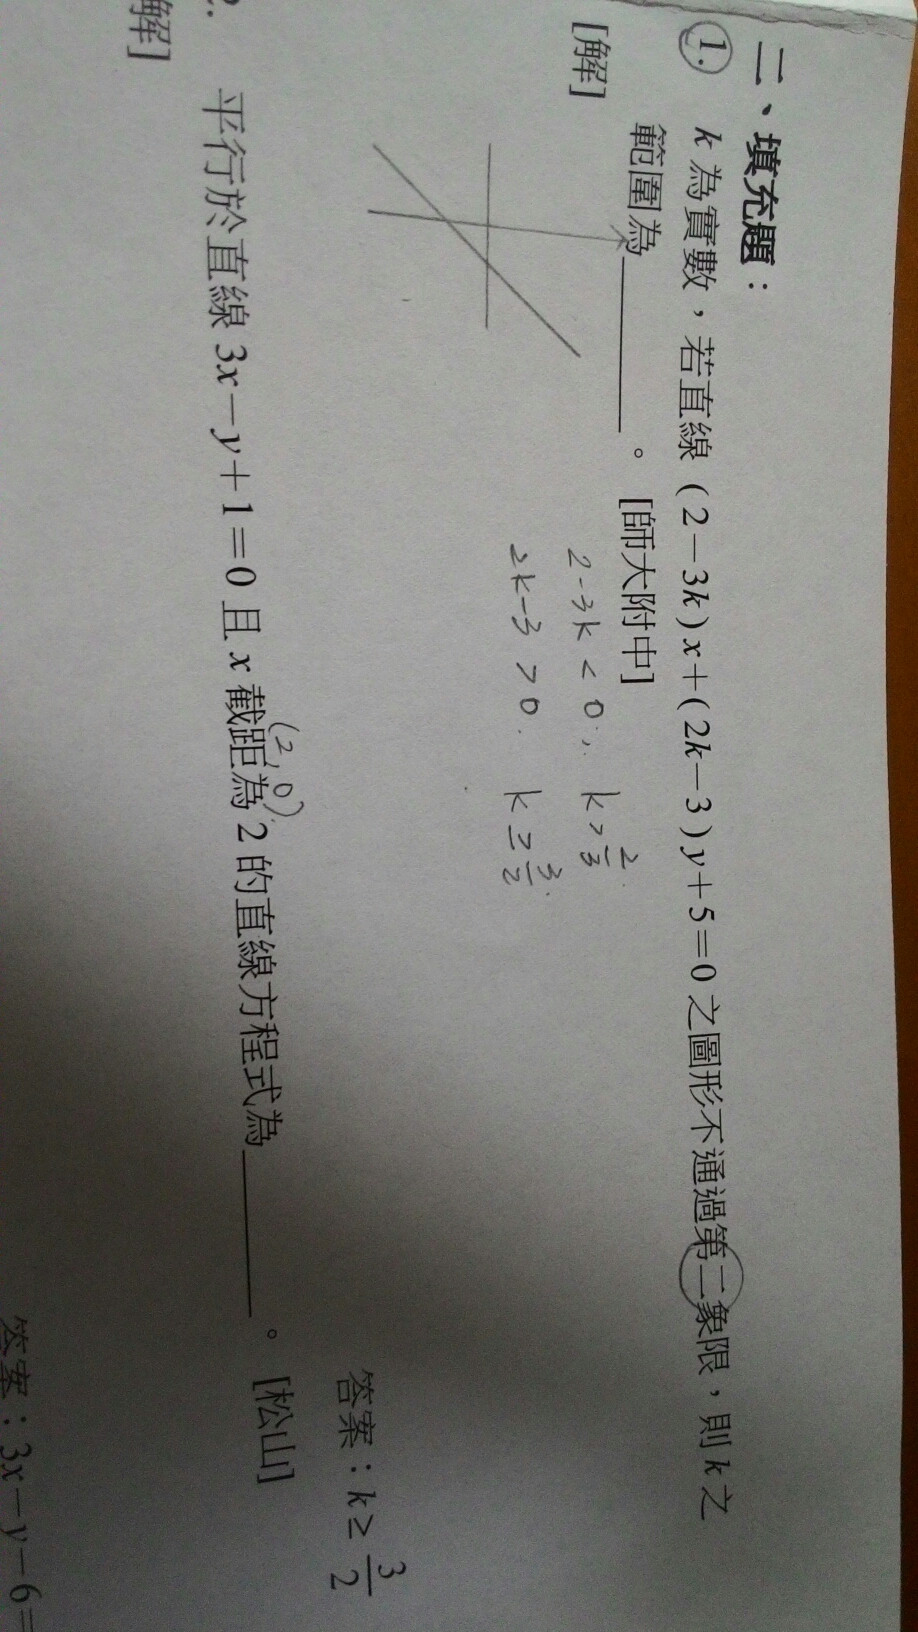 二、填充題：
1. k 為實數，若直線 (2－3k)x＋(2k－3)y＋5＝0 之圖形不通過第二象限，則 k 之
範圍為＿＿＿＿＿。[師大附中]
[解]
2－3k < 0, k > 2/3.
2k－3 > 0. k ≥ 3/2.
答案：k ≥ 3/2
2. 平行於直線 3x－y＋1＝0 且 x 截距為 2 的直線方程式為＿＿＿＿＿。[松山]
(2, 0)
解]
答案：3x－y－6＝